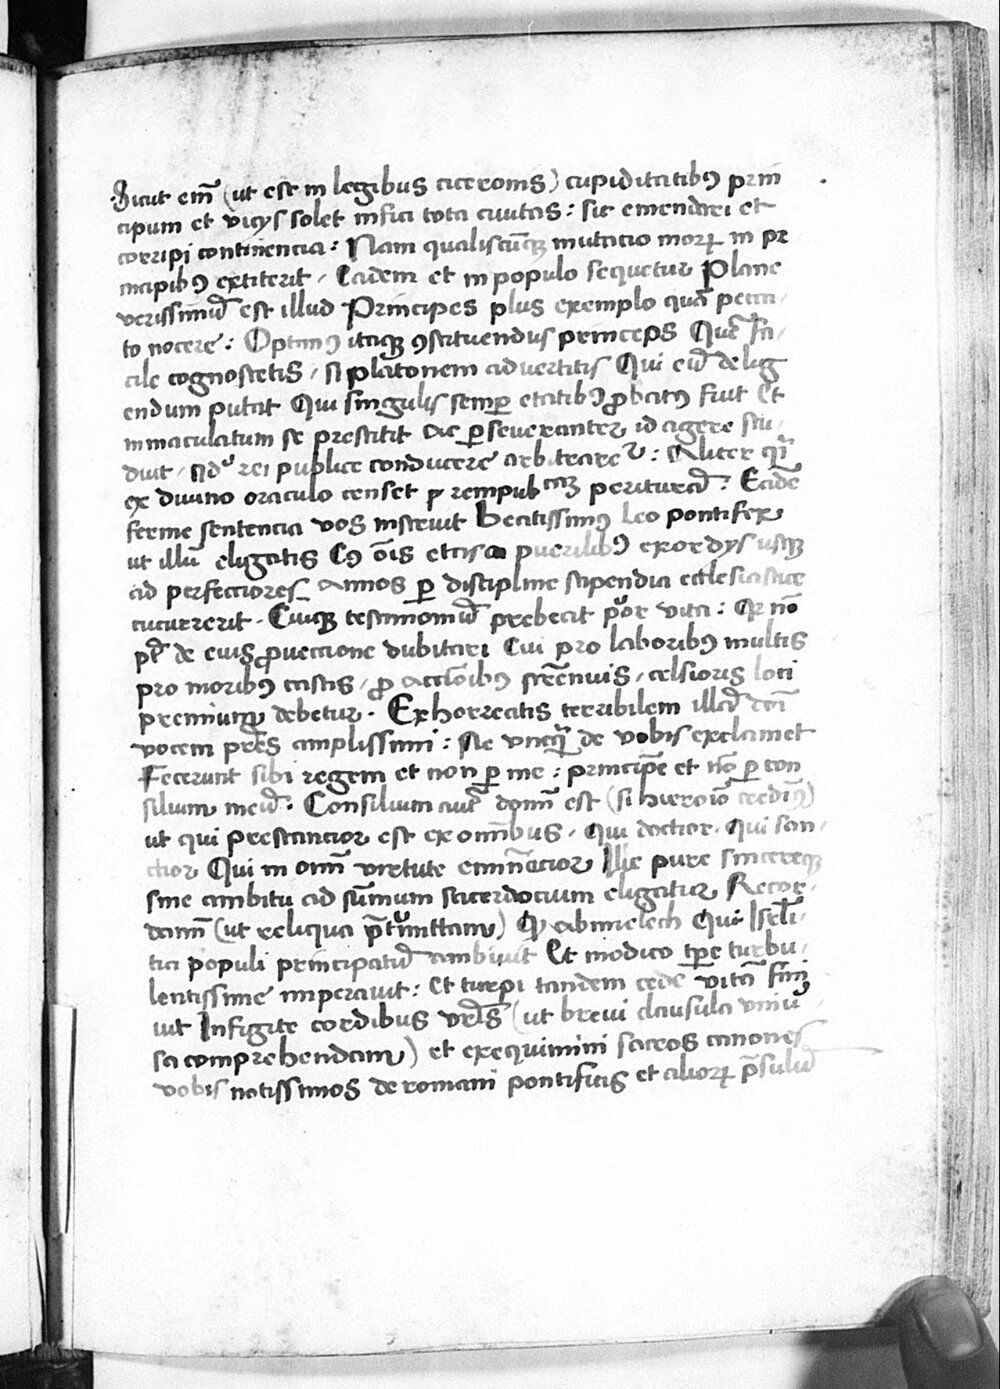 Sicut em̄ (ut est in legibus ciceronis) cupiditatibꝰ prin
cipum et vicijs solet infici tota ciuitas : sic emendari et
corripi continencia : Nam qualiscūqꝫ mutacio morꝝ in pr
incipibꝰ extiterit . Eadem et in populo sequetur Plane
verissimū est illud Principes plus exemplo quā pecca
to nocere : Optimꝰ itaqꝫ ꝯstituendus princeps Quē fa
cile cognoscetis , si platonem aduertitis Qui eū delig
endum putat Qui singulis semꝑ etatibꝰ ꝓbatꝰ fuit Et
inmaculatum se prestitit Ac ꝑseueranter id agere stu
duit , rei publice conducere arbitrare : Aliter
ex diuino oraculo censet rempub perituram : Eadē
ferme sentencia vos instruit Beatissimꝰ Leo pontifex
ut illū eligatis Cꝰ ōis etas a puerilibꝰ exordijs usqꝫ
ad perfectiores Annos ꝑ discipline stipendia ecclesiastice
cucurrerit . Cuiqꝫ testimoniū prebeat pͦor vita : nō
de eius ꝓueccione dubitari Cui pro laboribꝰ multis
pro moribꝰ castis , ꝓ actōibus strēnuis , celsioris loci
premium debetur . Exhorreatis terribilem illā
vocem prēs amplissimi : Ne unqͣ de vobis exclamet
Fecerunt sibi regem et non ꝑ me : principē et nō ꝑ con
silium meū . Consilium autē domī est (si hieroīo credimꝰ)
ut qui prestancior est ex omībus , Qui doctior , Qui san
ctior Qui in omī virtute eminēcior Ille pure sincereqꝫ
sine ambitu ad sūmum sacerdocium eligatur Recor
damī (ut reliqua p̄termittam) Abimelech Qui Isrl̄i
tici populi principatū ambiuit Et modico tꝑe turbu
lentissime imperauit : Et turpi tandem cede vitā fini
uit Infigite cordibus vrīs (ut breui clausula vniu
sa comprehendam) et exequimini sacros canones
vobis notissimos de romani pontificis et aliorꝝ p̄sulū